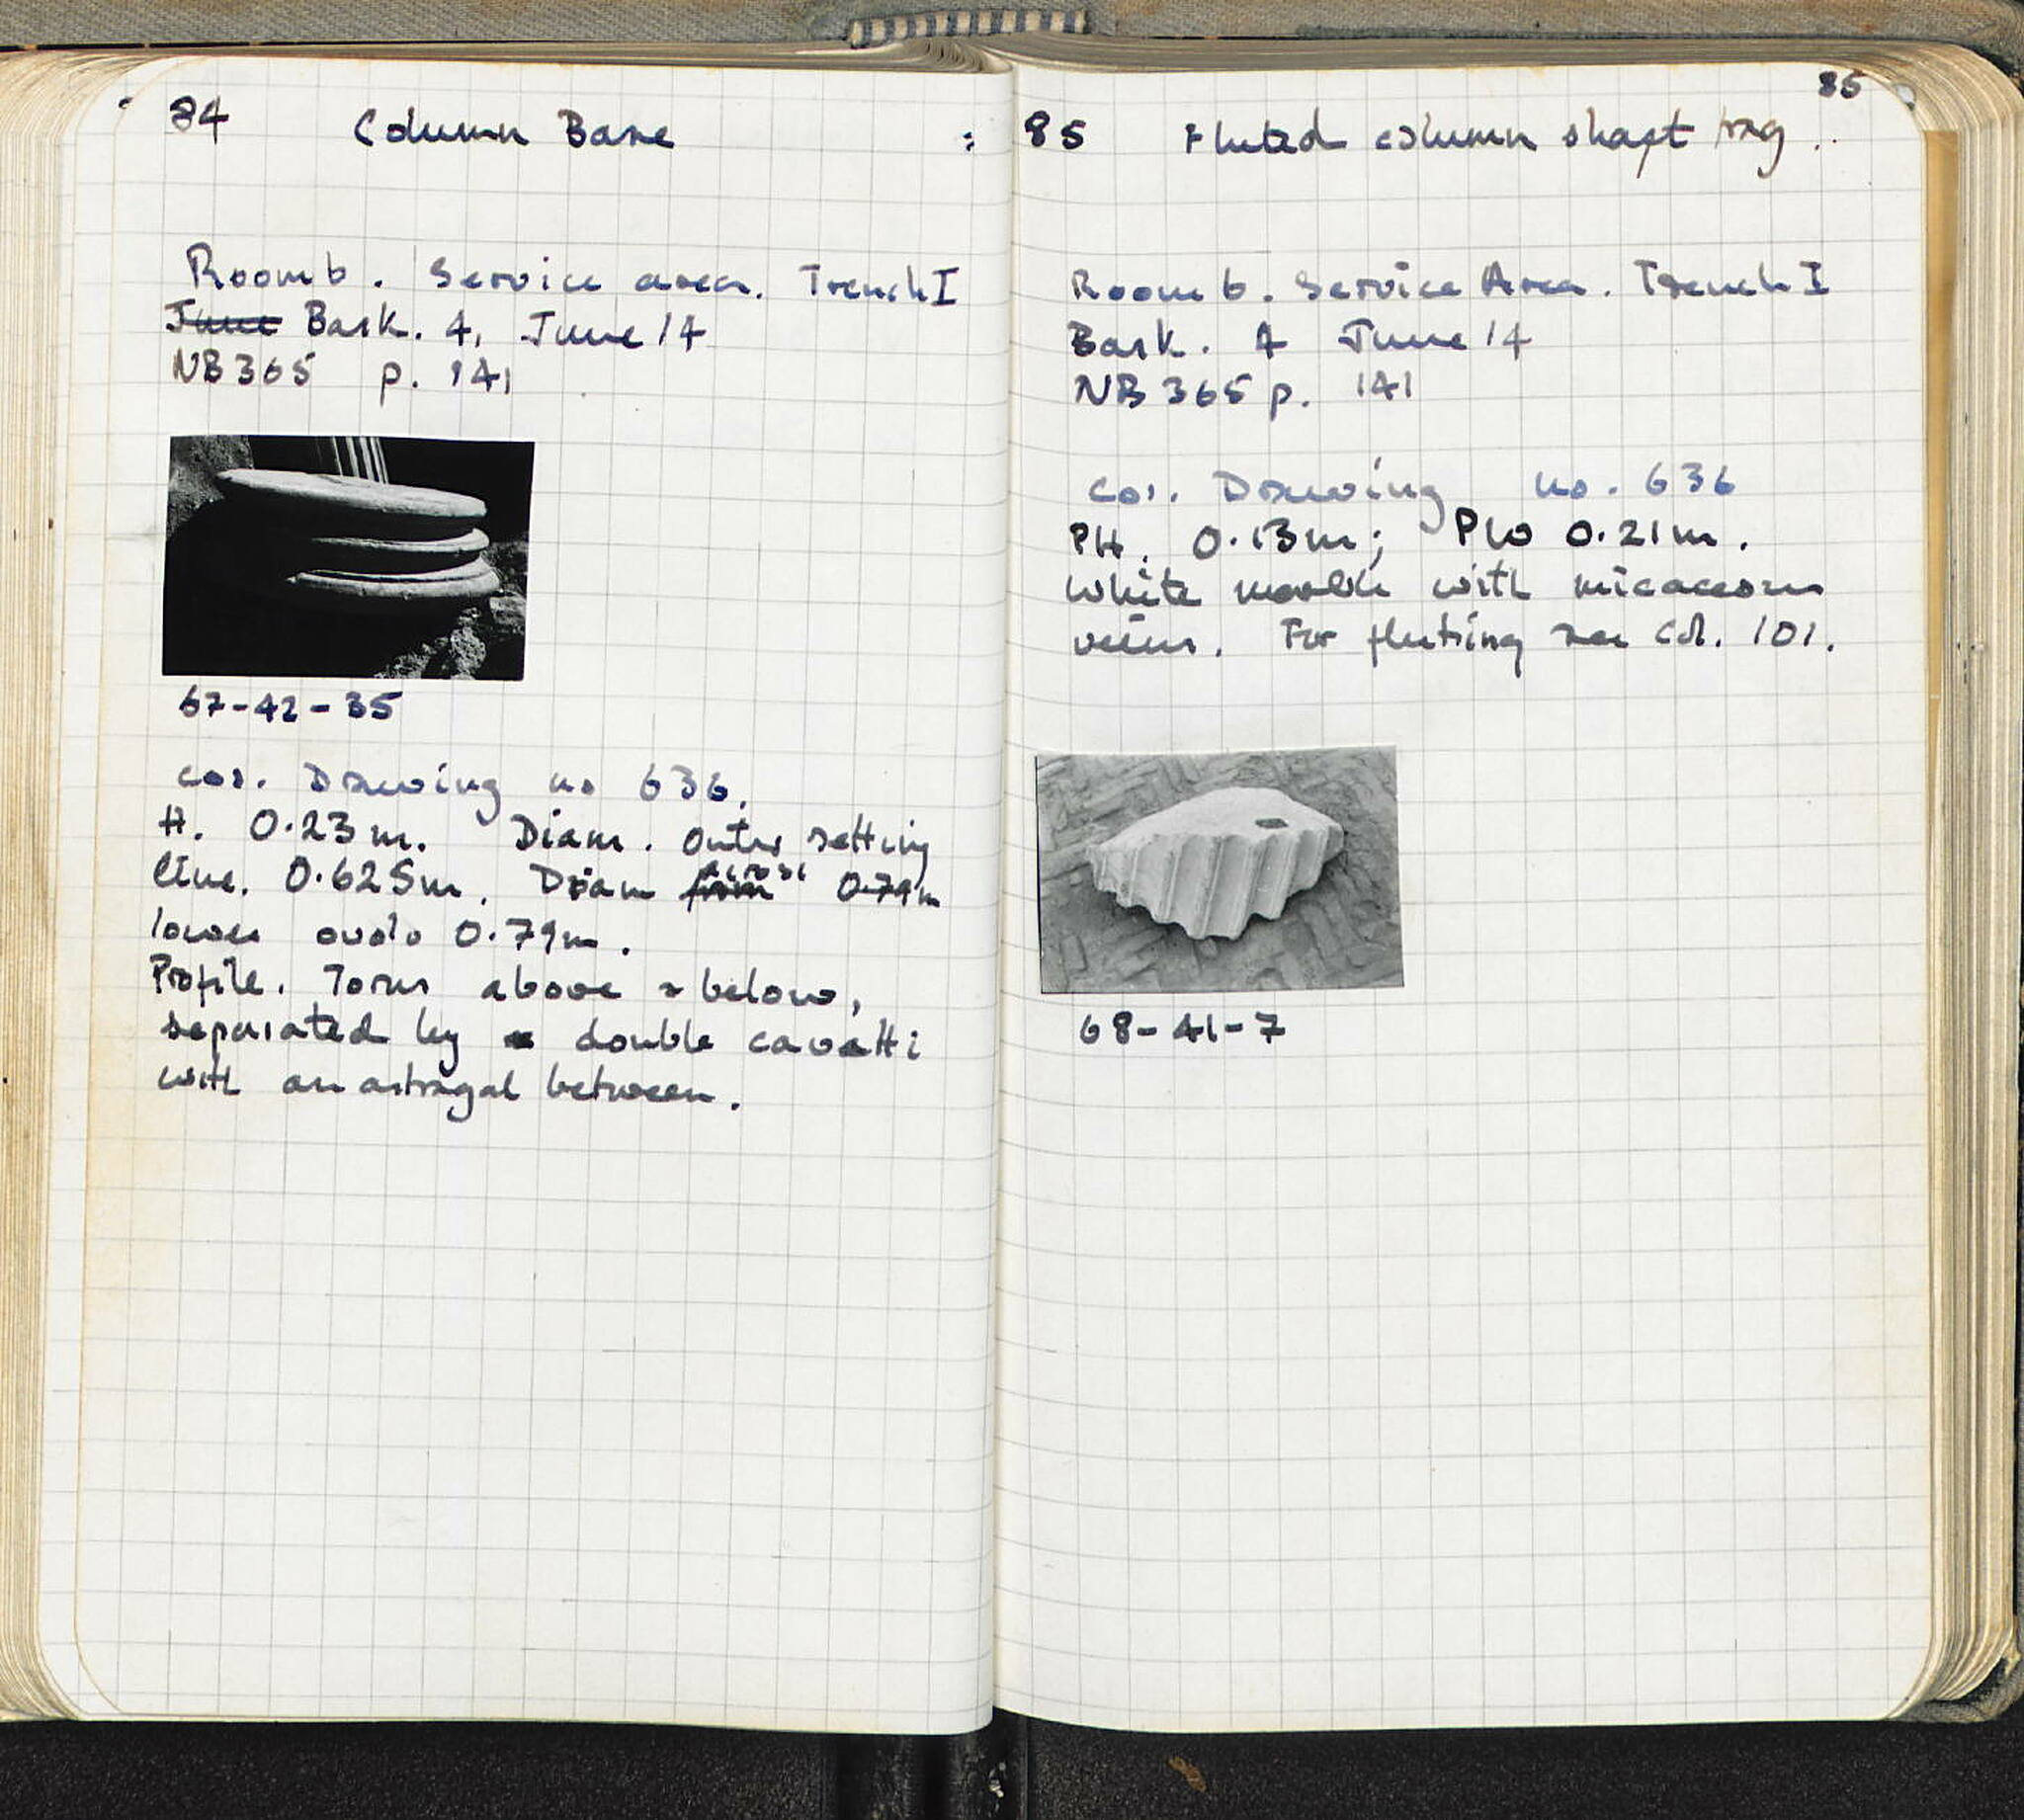 84 Column Base
Room 6. Service area. Trench I
June Bask. 4, June 14
NB365 p. 141
67-42-35
Cor. Drawing no 636.
H. 0.23m. Diam. outer setting
line. 0.625m. Diam from across 0.79m
lower ovolo 0.79m.
Profile. Torus above & below,
separated by double cavetti
with an astragal between.
85
85 Fluted column shaft frag.
Room 6. Service Area. Trench I
Bask. 4 June 14
NB 365 p. 141
Cor. Drawing no. 636
PH. 0.13m; PW 0.21m.
White marble with micaceous
veins. For fluting see Col. 101.
68-41-7